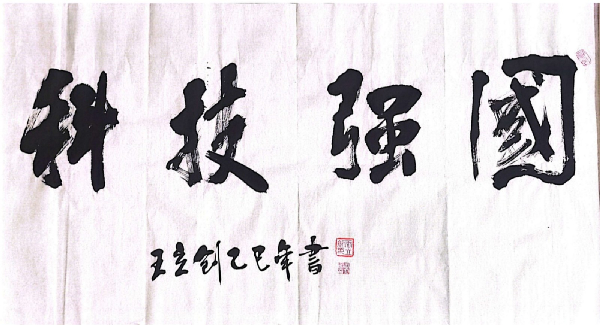 科技强國
王立剑乙巳年書